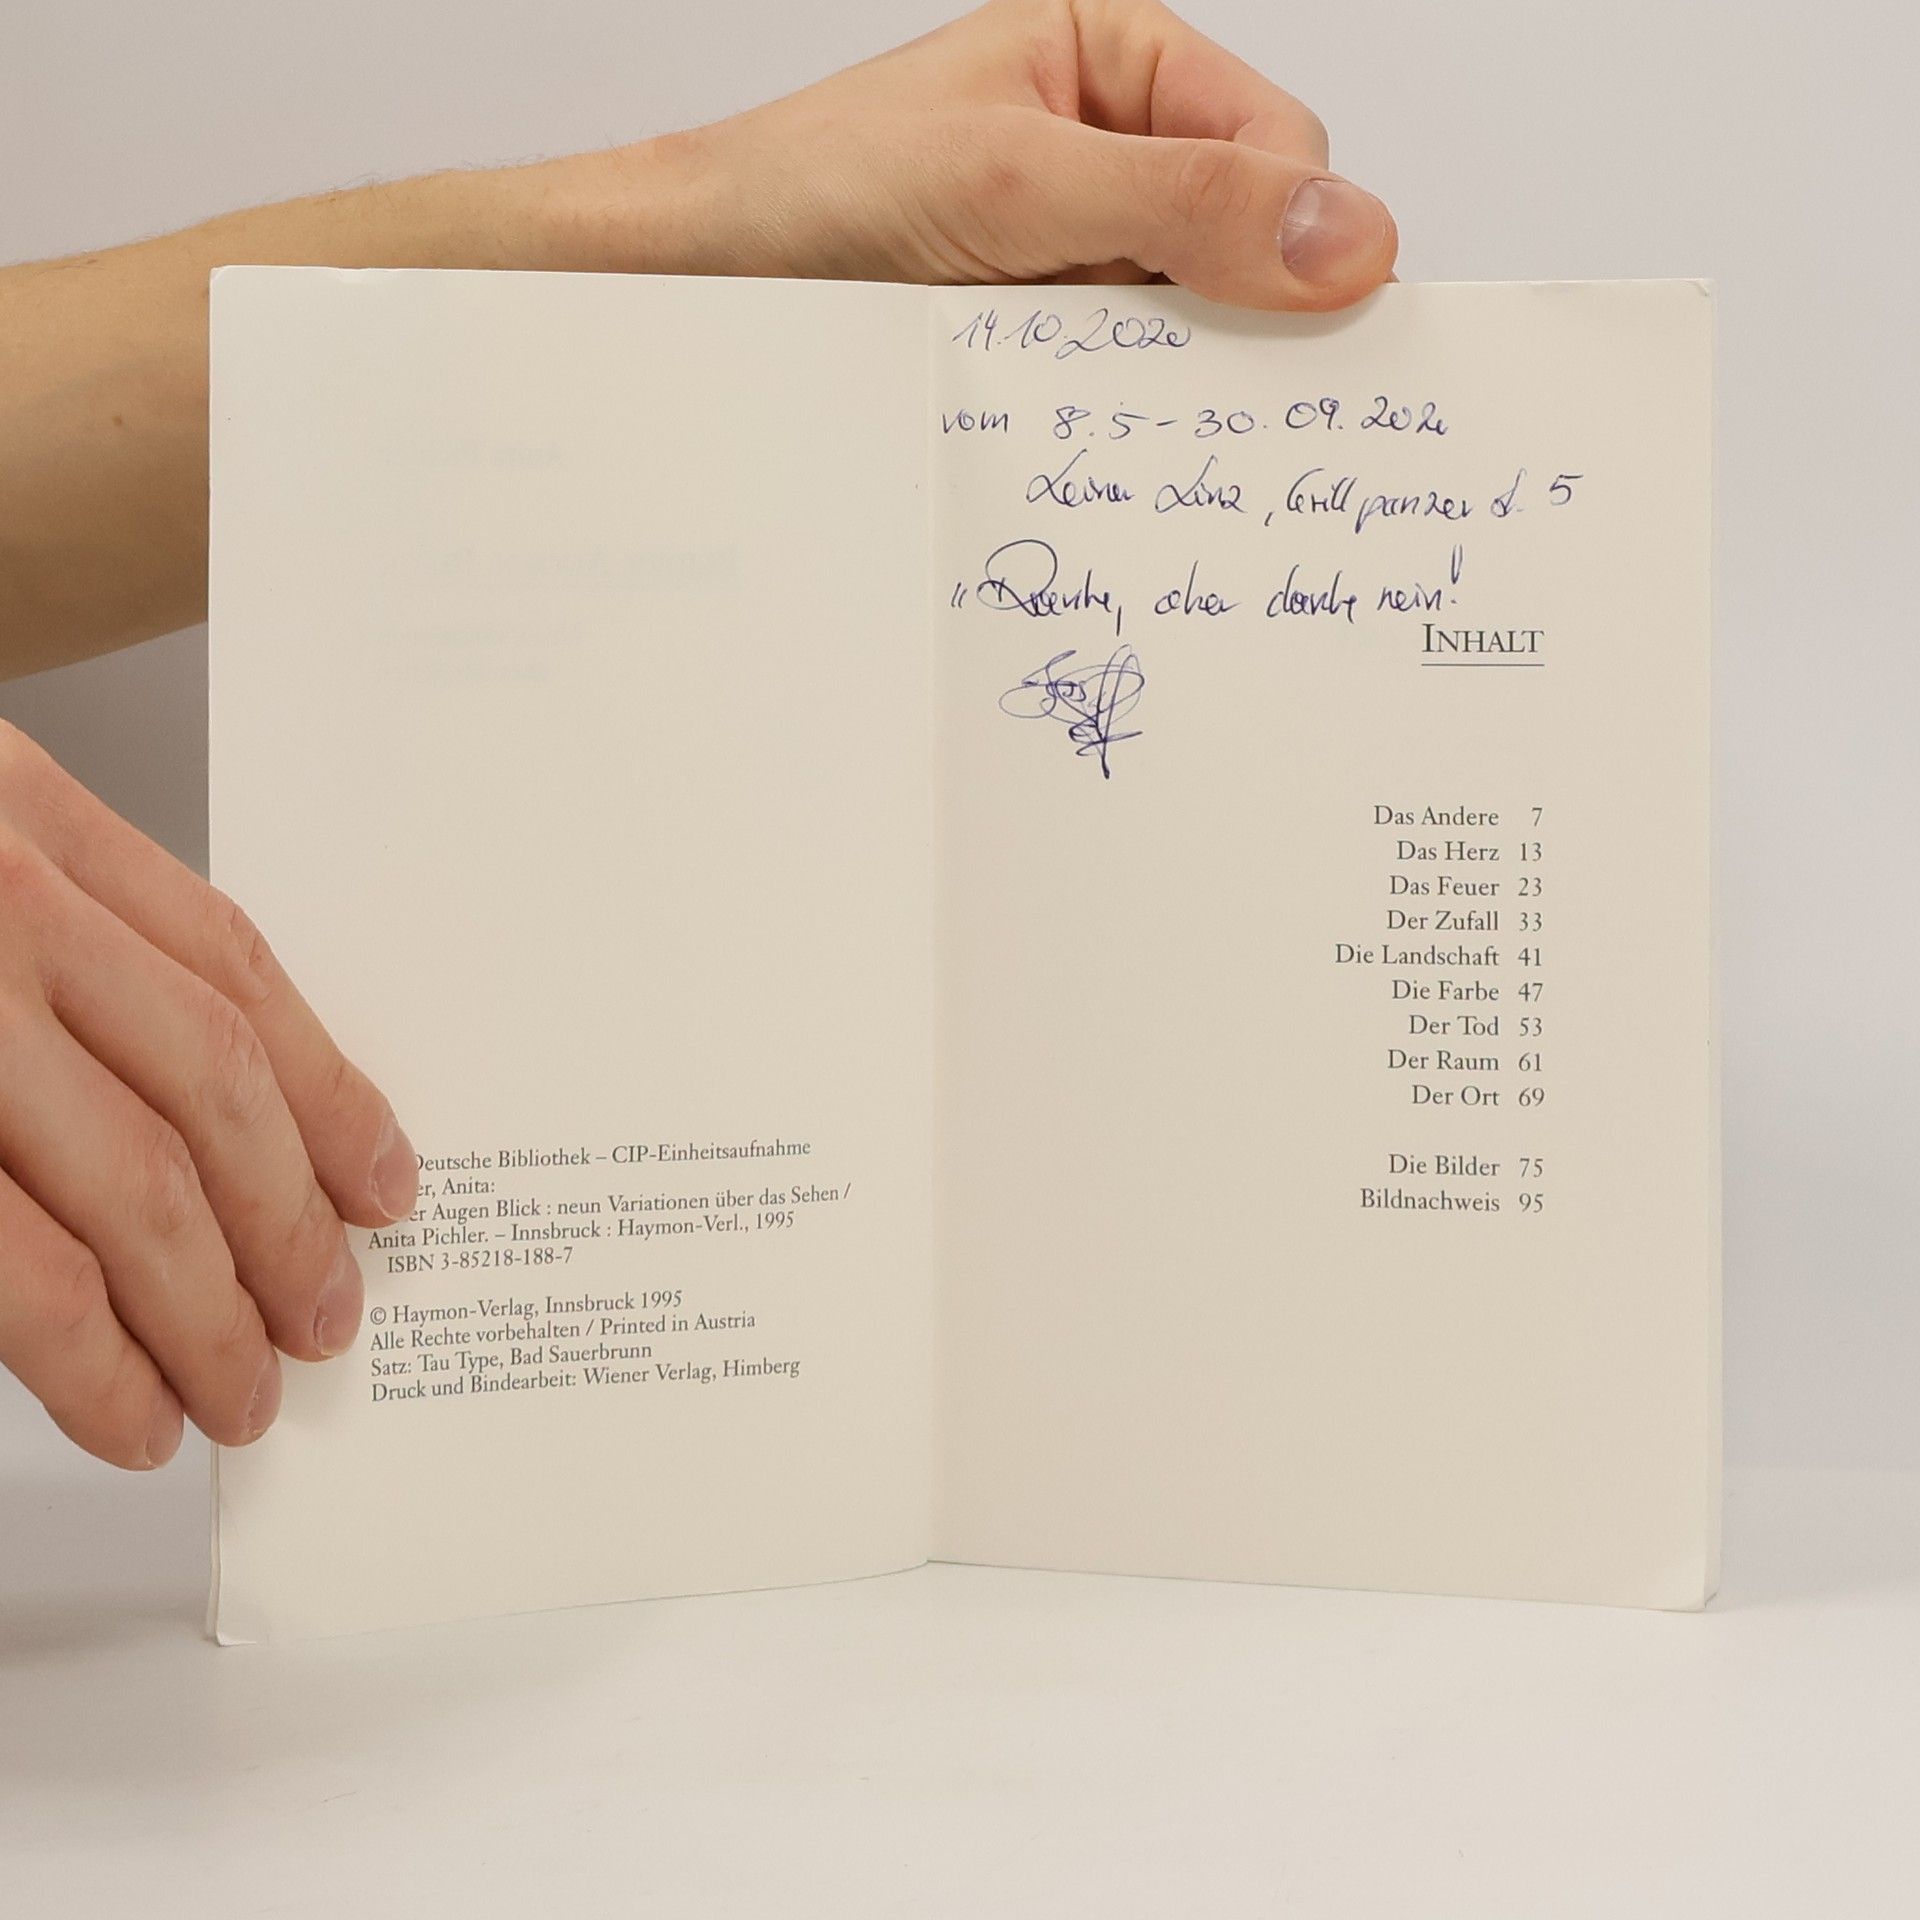 Deutsche Bibliothek – CIP-Einheitsaufnahme
er, Anita:
er Augen Blick : neun Variationen über das Sehen /
Anita Pichler. – Innsbruck : Haymon-Verl., 1995
ISBN 3-85218-188-7
© Haymon-Verlag, Innsbruck 1995
Alle Rechte vorbehalten / Printed in Austria
Satz: Tau Type, Bad Sauerbrunn
Druck und Bindearbeit: Wiener Verlag, Himberg
14.10.2020
vom 8.5 – 30.09.2020
Leiner Linz, Grillparzer 5
aber danke nein!
INHALT
Das Andere 7
Das Herz 13
Das Feuer 23
Der Zufall 33
Die Landschaft 41
Die Farbe 47
Der Tod 53
Der Raum 61
Der Ort 69
Die Bilder 75
Bildnachweis 95